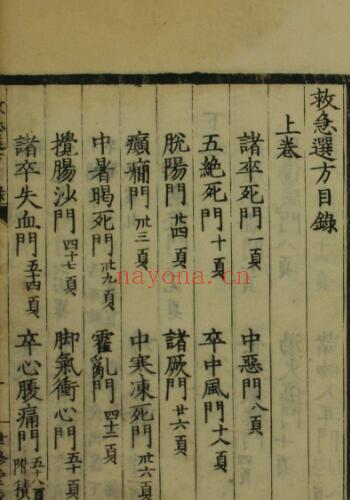 救急選方目錄
上卷
諸卒死門 一頁
中惡門 八頁
五絕死門 十頁
卒中風門 十八頁
脫陽門 廿四頁
諸厥門 廿六頁
癲癇門 卅三頁
中寒凍死門 卅六頁
中暑暍死門 卅九頁
霍亂門 四十二頁
攪腸沙門 四十七頁
脚氣衝心門 五十頁
諸卒失血門 五十四頁
卒心腹痛門 五十八頁 附積
nayona.cn